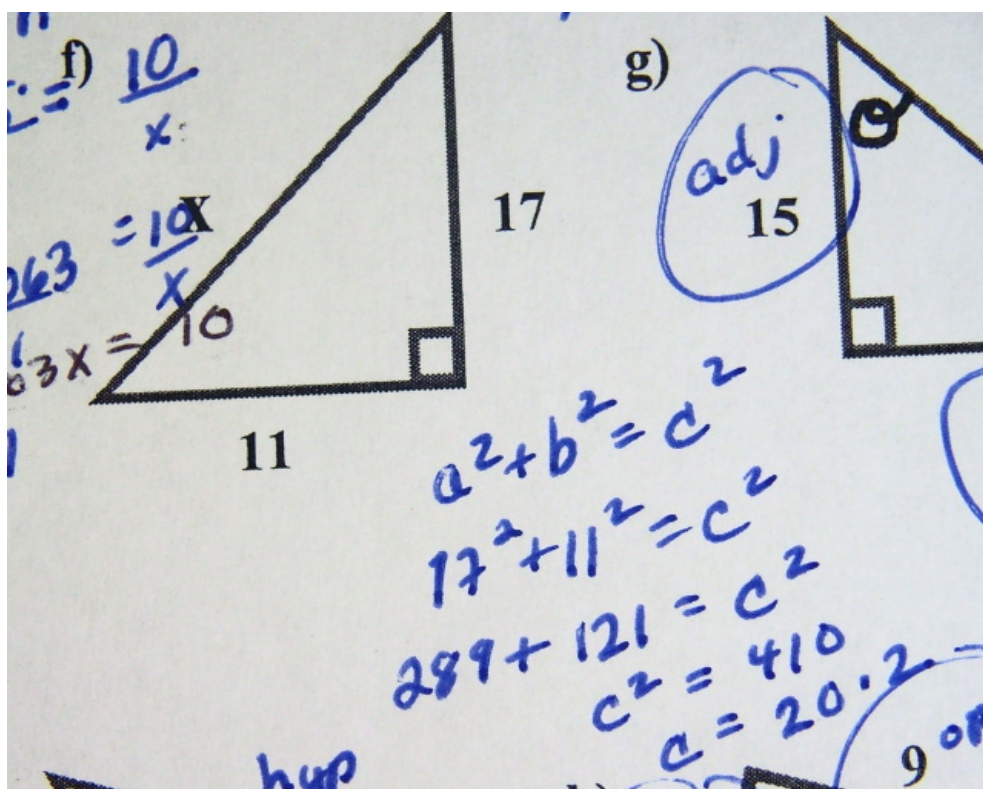 f)
10
x
x
= 10
x
63
3x = 10
17
11
g)
adj
15
θ
a² + b² = c²
17² + 11² = c²
289 + 121 = c²
c² = 410
c = 20.2
hyp
9